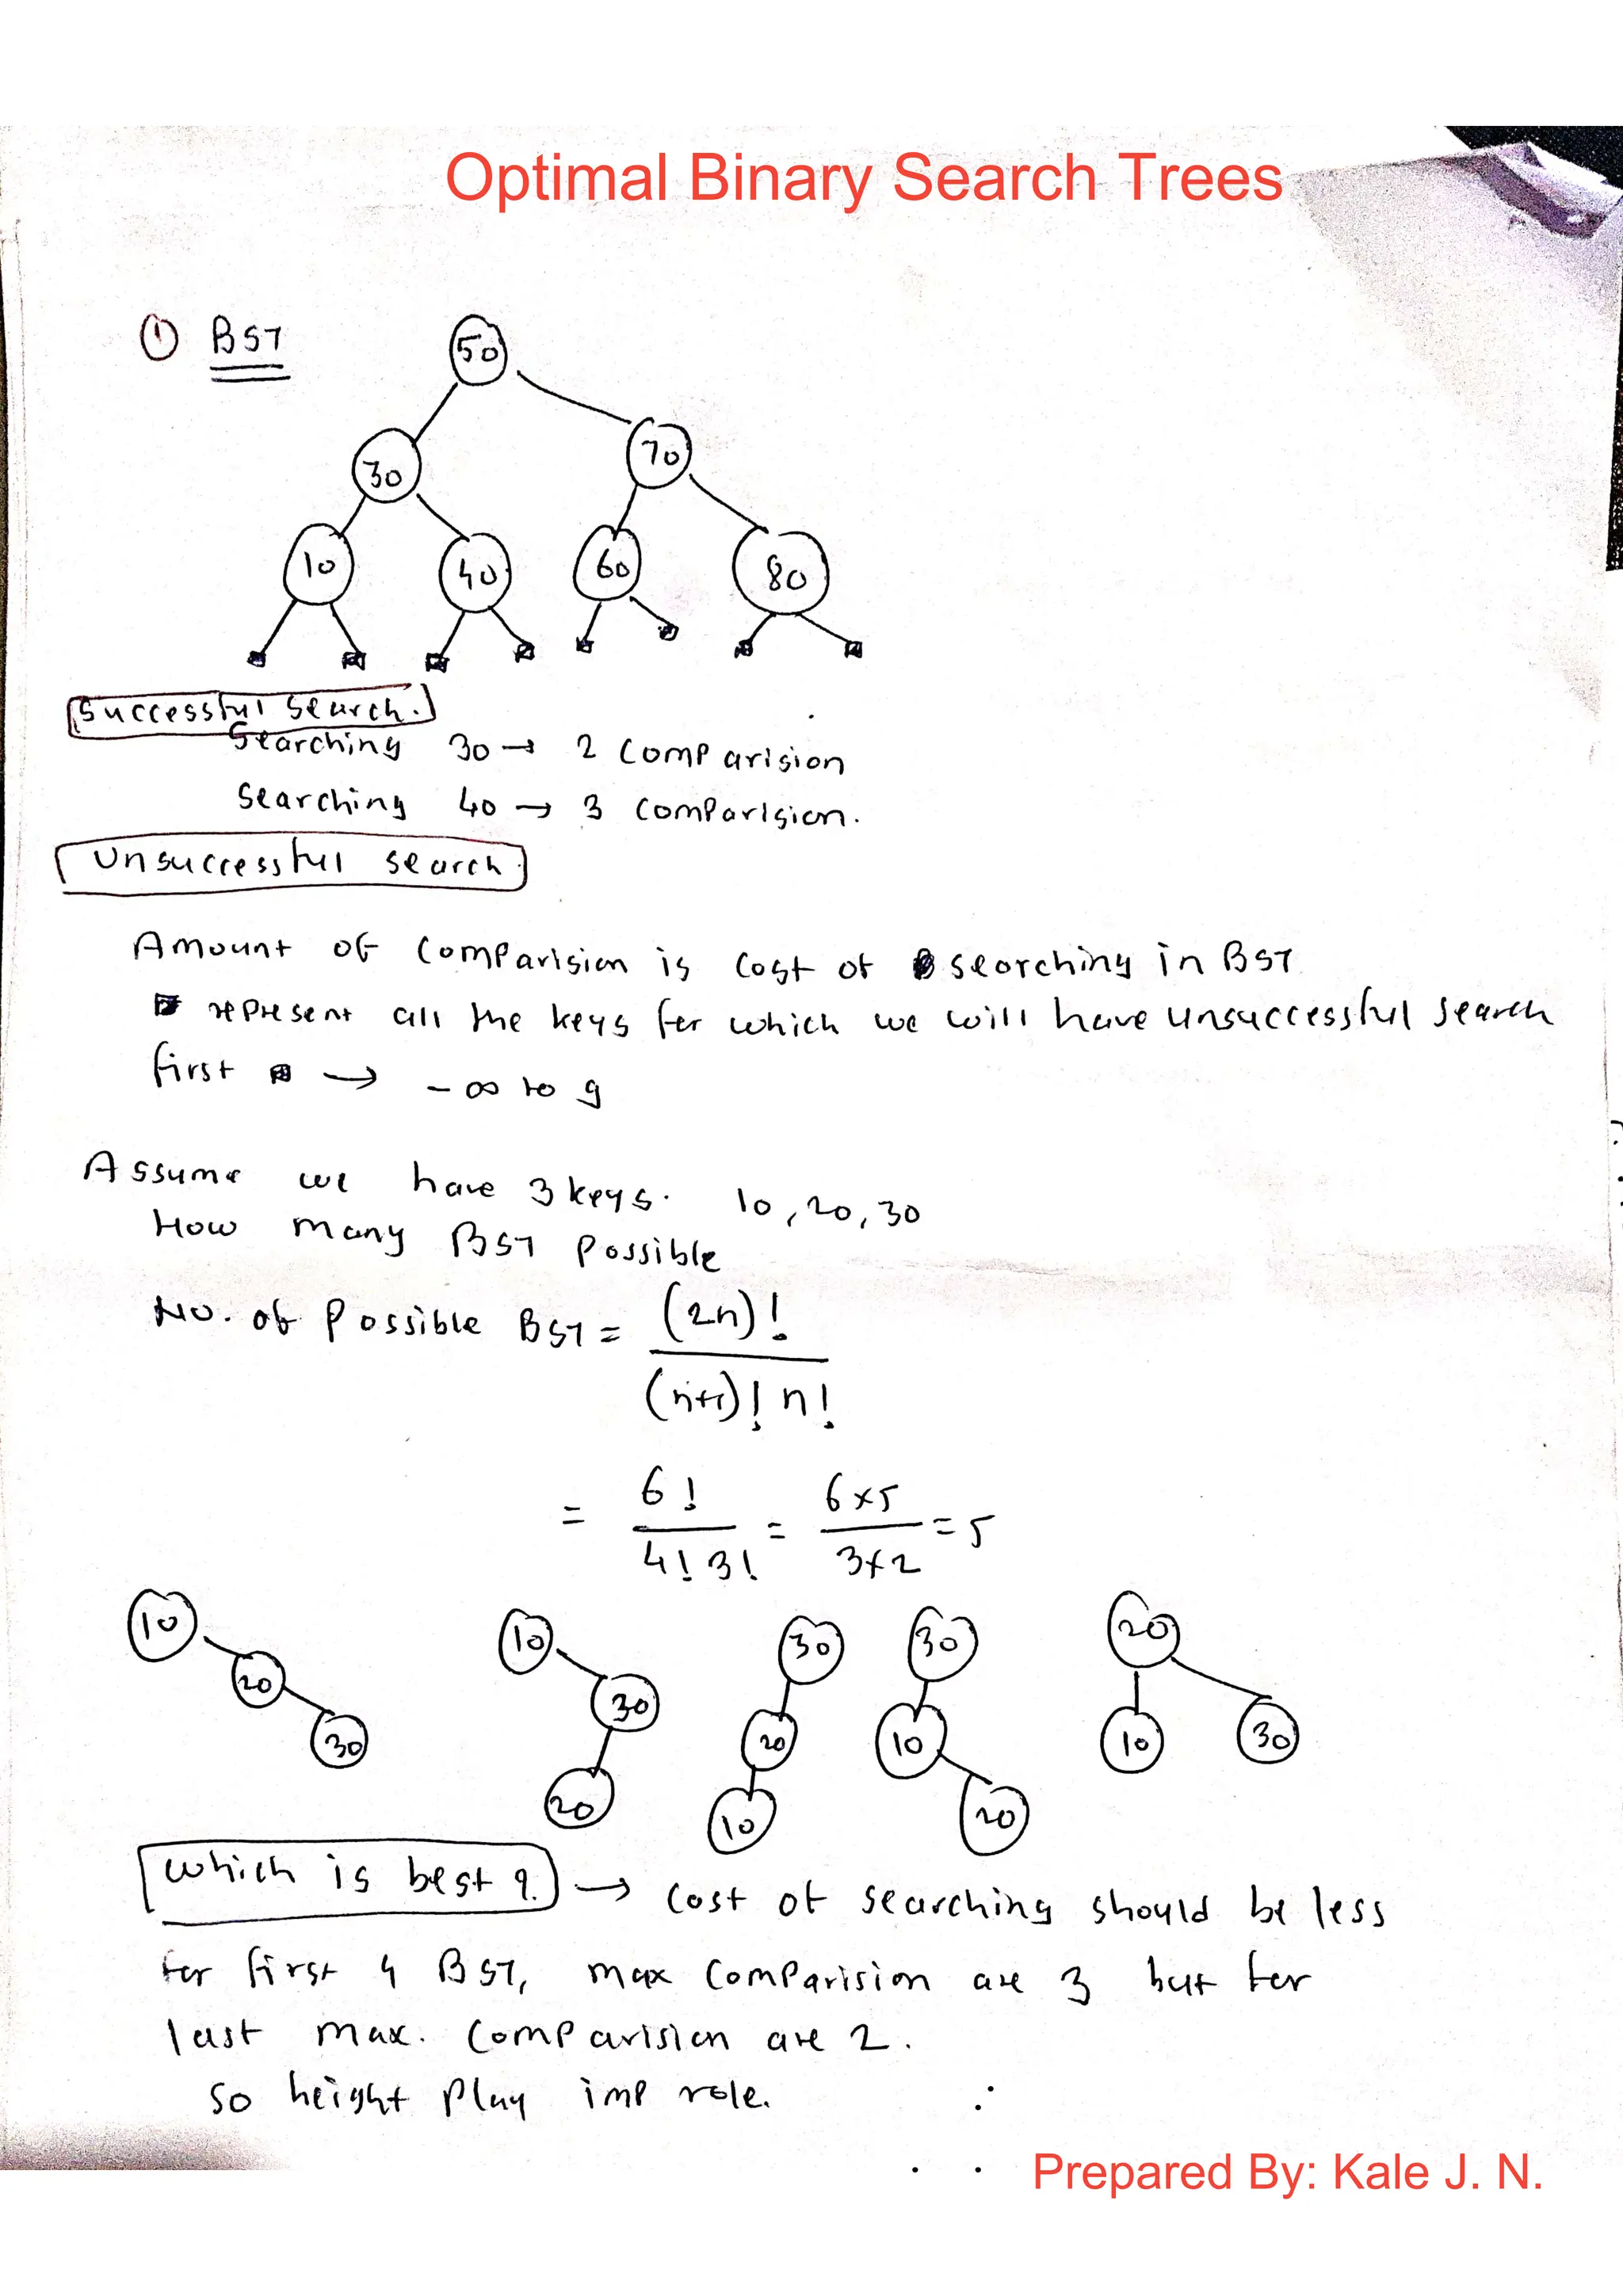 Optimal Binary Search Trees
① BST
50
30 70
10 40 60 80
Successful Search.
Searching 30 → 2 Comparision
Searching 40 → 3 Comparision.
Unsuccessful search
Amount of Comparision is Cost of searching in BST
represent all the keys for which we will have unsuccessful search
first → - ∞ to 9
Assume we have 3 keys. 10, 20, 30
How many BST possible
No. of Possible BST = (2n)! / (n+1)! n!
= 6! / 4! 3! = 6×5 / 3×2 = 5
10 10 30 30 20
20 30 20 10 10 30
30 20 10 20
which is best ? → Cost of searching should be less
for first 4 BST, max Comparision are 3 but for
last max. Comparision are 2.
So height play imp role.
Prepared By: Kale J. N.